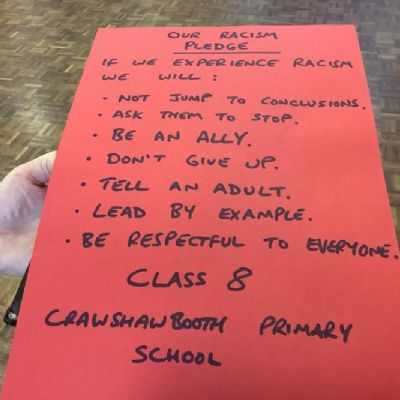 OUR RACISM
PLEDGE
IF WE EXPERIENCE RACISM
WE WILL :
• NOT JUMP TO CONCLUSIONS.
• ASK THEM TO STOP.
• BE AN ALLY.
• DON'T GIVE UP.
• TELL AN ADULT.
• LEAD BY EXAMPLE.
• BE RESPECTFUL TO EVERYONE.
CLASS 8
CRAWSHAWBOOTH PRIMARY
SCHOOL